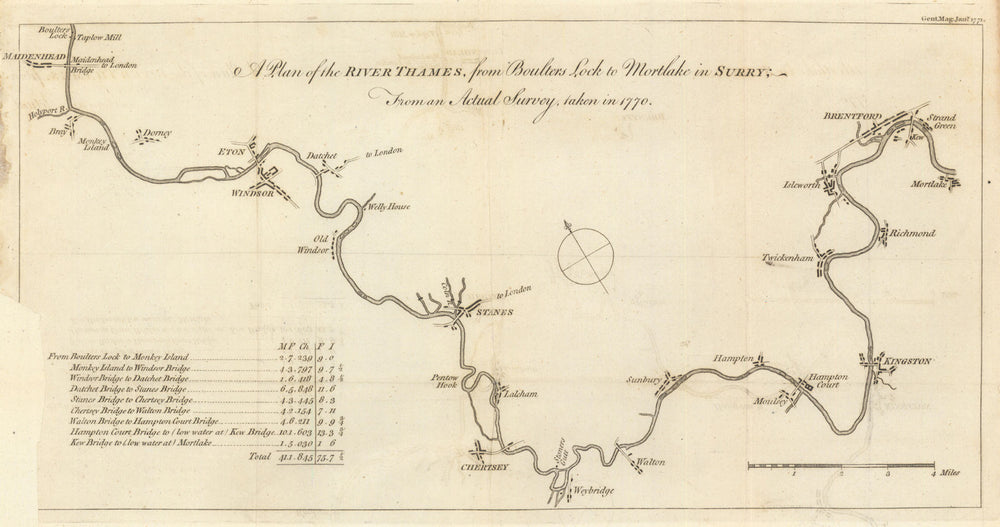 Gent. Mag: Jan.y 1771.
A Plan of the RIVER THAMES, from Boulters Lock to Mortlake in SURRY;
From an Actual Survey, taken in 1770.
Boulters
Lock
Taplow Mill
MAIDENHEAD
Maidenhead
Bridge
to London
Holyport R.
Bray
Monkey
Island
Dorney
ETON
WINDSOR
Datchet
to London
Welly House
Old
Windsor
Coln R.
to London
STANES
Penton
Hook
Laleham
CHERTSEY
Stoners
Gut
Weybridge
Walton
Sunbury
Hampton
Hampton
Court
Moulsey
KINGSTON
Twickenham
Richmond
Isleworth
BRENTFORD
Kew
Strand
Green
Mortlake
M F Ch. F I
From Boulters Lock to Monkey Island 2.7.239 9.0
Monkey Island to Windsor Bridge 4.3.797 9.7 1/4
Windsor Bridge to Datchet Bridge 1.6.418 4.8 1/4
Datchet Bridge to Stanes Bridge 6.5.848 11.6
Stanes Bridge to Chertsey Bridge 4.3.445 8.3
Chertsey Bridge to Walton Bridge 4.2.154 7.11
Walton Bridge to Hampton Court Bridge 4.6.211 9.9 3/4
Hampton Court Bridge to (low water at) Kew Bridge 10.1.603 13.3 3/4
Kew Bridge to (low water at) Mortlake 1.5.030 1 6
Total 41.1.845 75.7 1/2
1 2 3 4 Miles